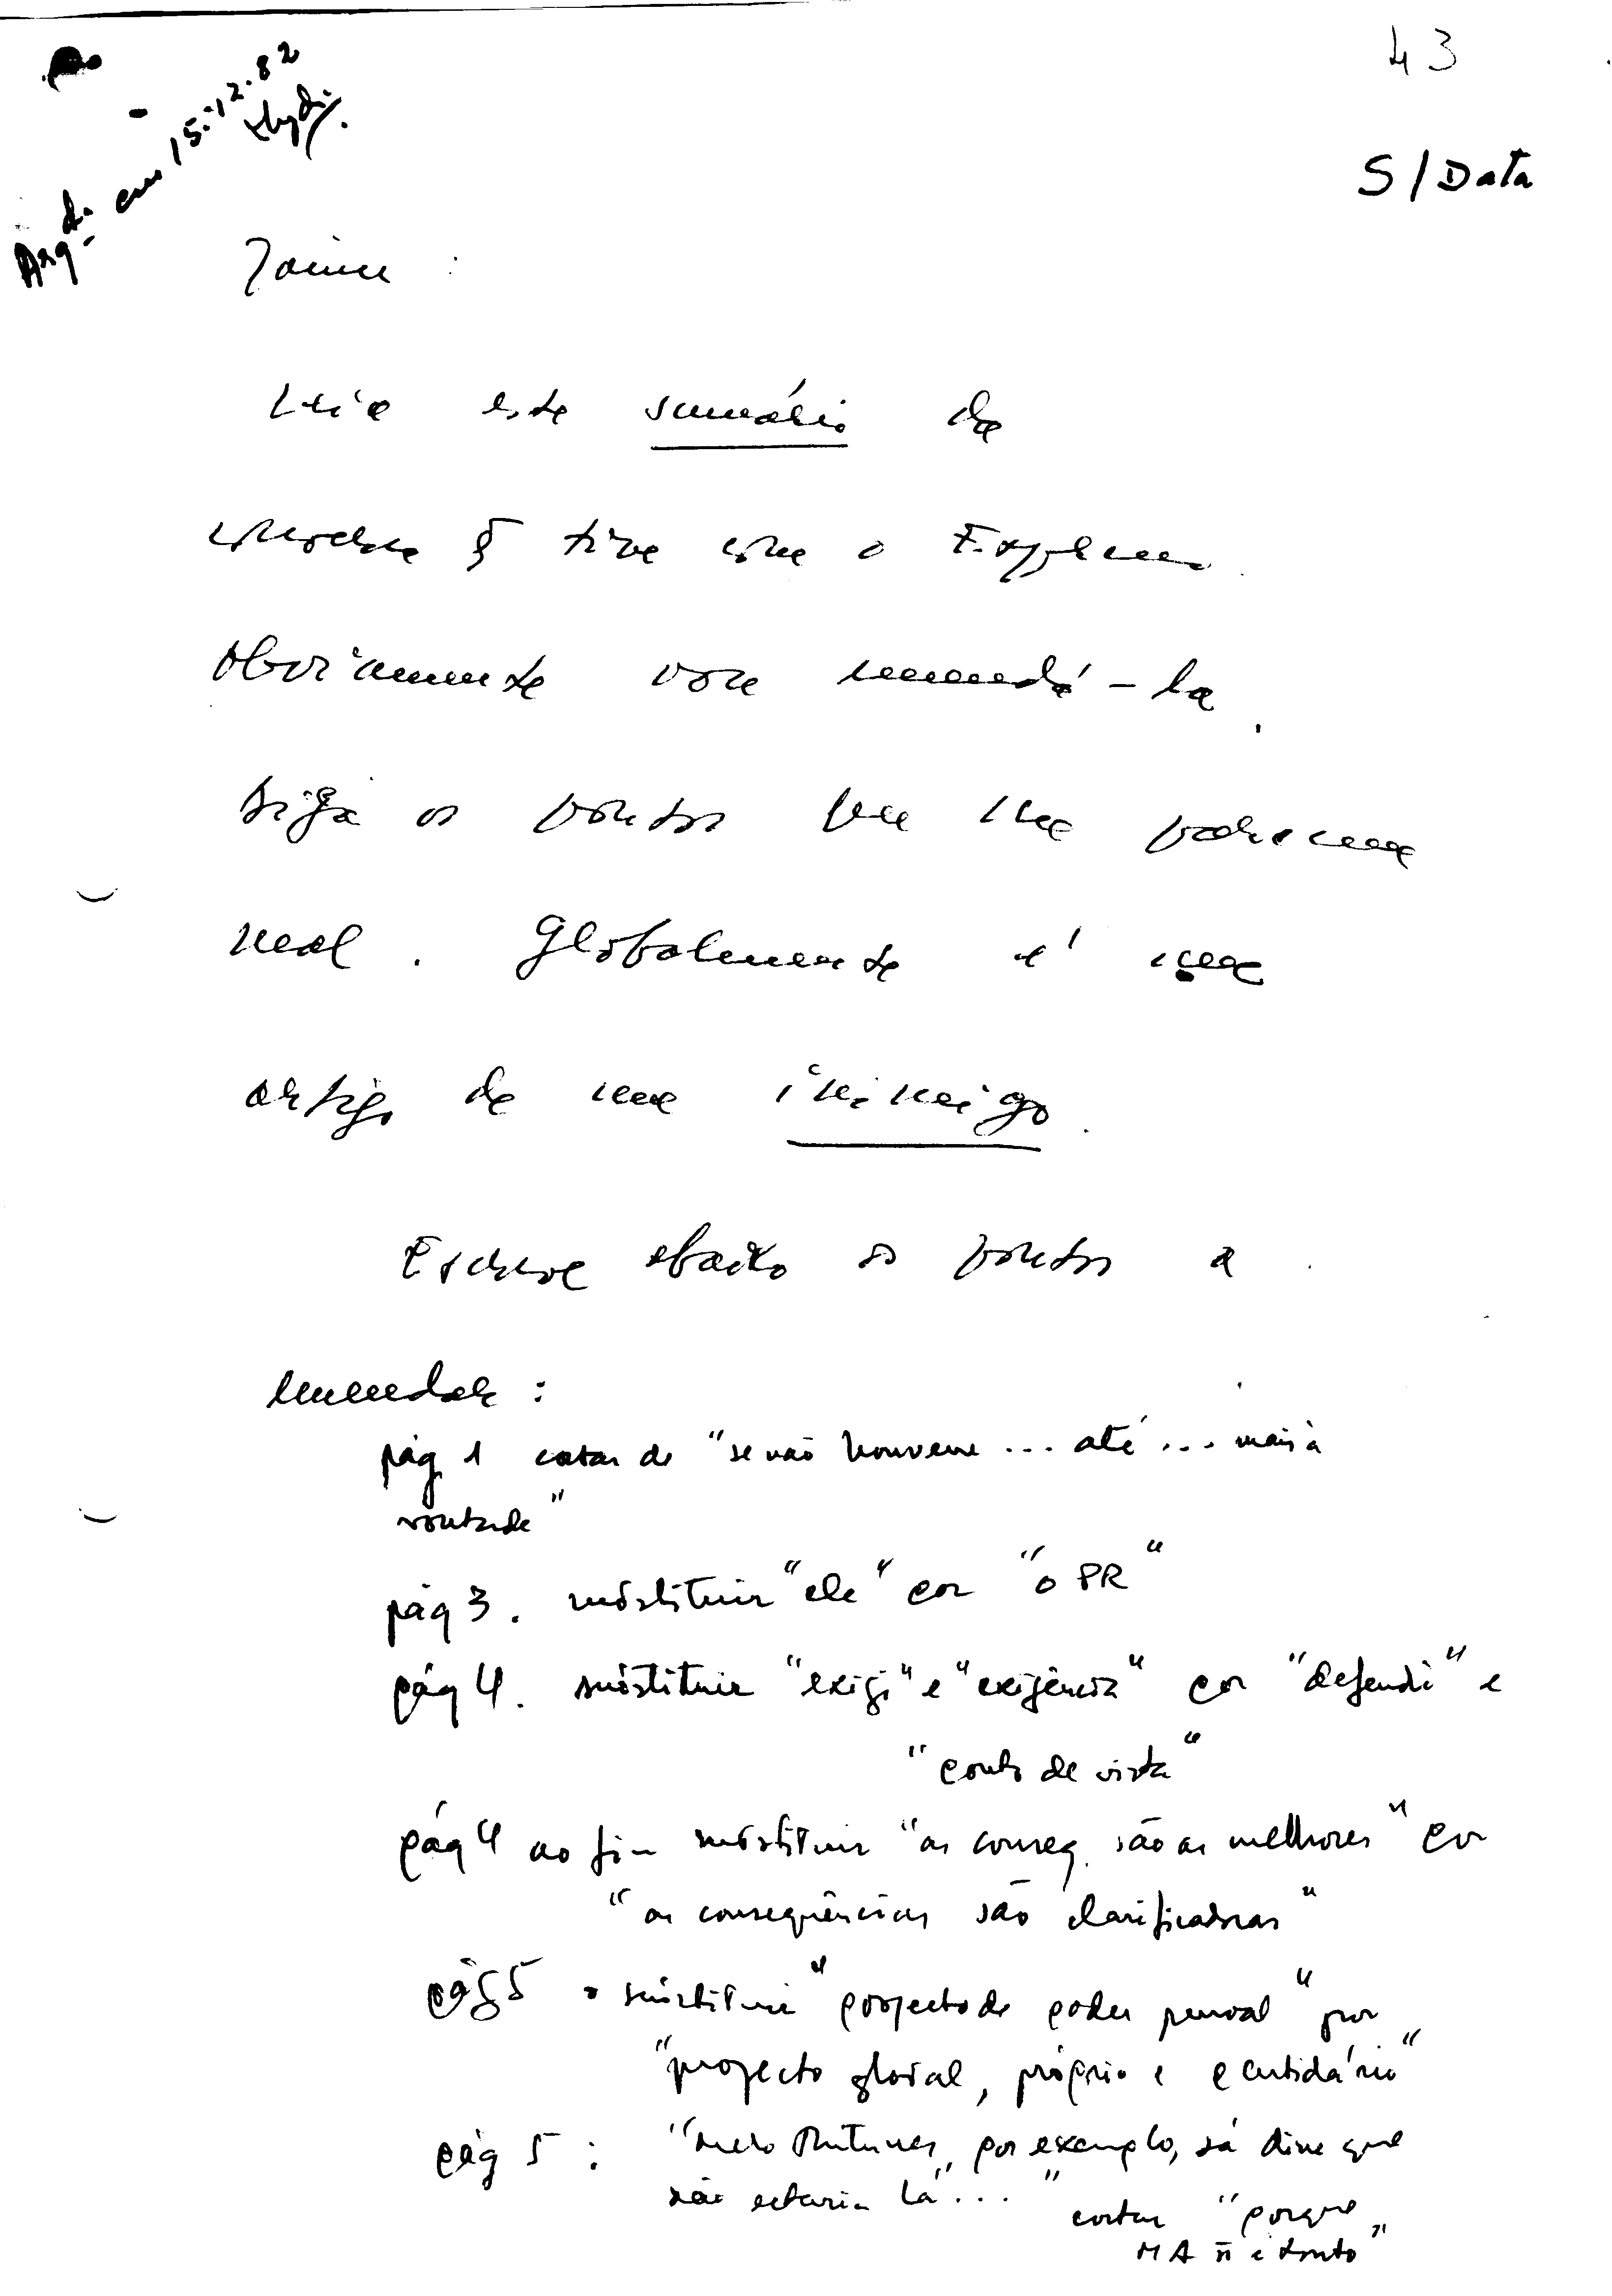 43
S/Data
Arq. do em 15.12.82
Jaime :
Leia este sumário da
conversa q̃ tive com o Expresso.
Obviamente vou emendá-la.
Diga os pontos que lhe parecem
mal. Globalmente é um
artigo de um inimigo.
Escreve abaixo os pontos a
emendar :
pág 1 cortar de "se não houvesse ... até ... mais à
vontade"
pág 3. substituir "ele" por "o PR"
pág 4. substituir "exigi" e "exigência" por "defendi" e
"ponto de vista"
pág 4 ao fim substituir "as conseq. são as melhores" por
"as consequências são clarificadoras"
pág 5 substituir "projecto de poder pessoal" por
"projecto global, próprio e partidário"
pág 5 : "Melo Antunes, por exemplo, já disse que
não estaria lá..." cortar "porque
MA ñ é tonto"